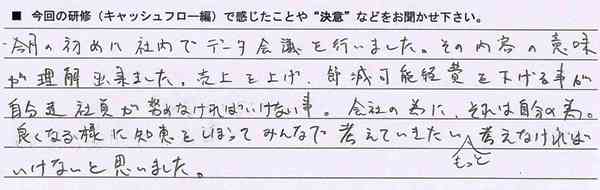 ■ 今回の研修（キャッシュフロー編）で感じたことや“決意”などをお聞かせ下さい。
今月の初めに社内でデータ会議を行いました。その内容の意味
が理解出来ました。売上を上げ、節減可能経費を下げる事が
自分達社員が努めなければいけない事。会社の為に、それは自分の為。
良くなる様に知恵をしぼってみんなで考えていきたい 考えなければ
もっと
いけないと思いました。